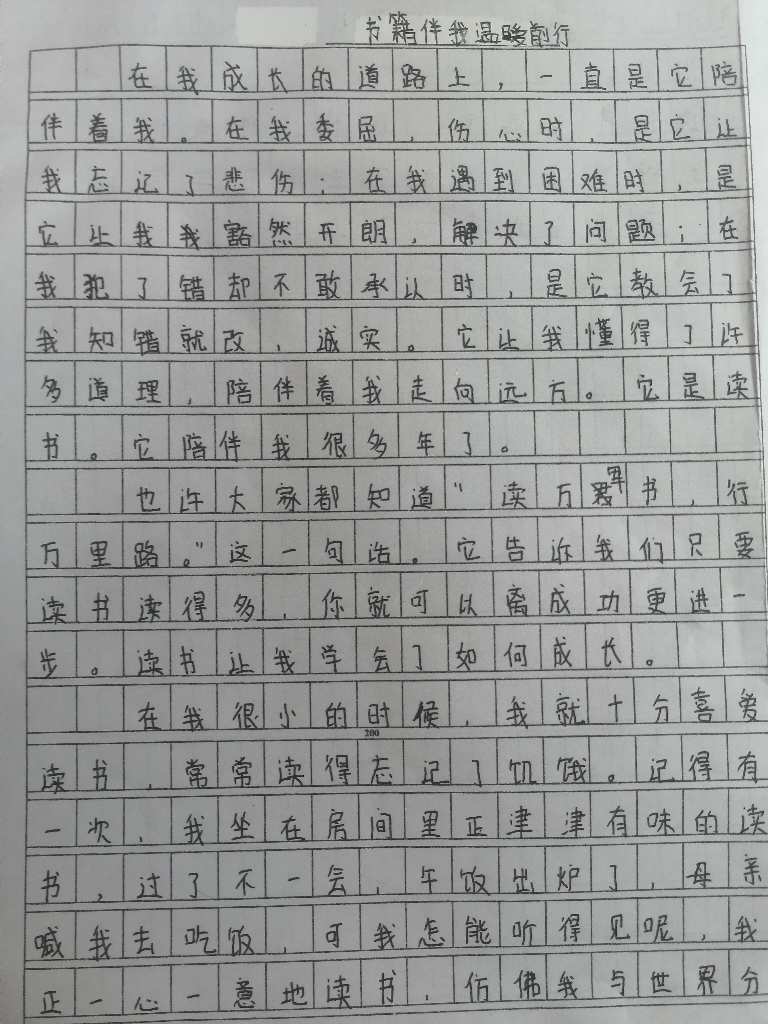 书籍伴我温暖前行
在我成长的道路上，一直是它陪
伴着我。在我委屈，伤心时，是它让
我忘记了悲伤；在我遇到困难时，是
它让我我豁然开朗，解决了问题；在
我犯了错却不敢承认时，是它教会了
我知错就改，诚实。它让我懂得了许
多道理，陪伴着我走向远方。它是读
书。它陪伴我很多年了。
也许大家都知道“读万卷书，行
万里路。”这一句话。它告诉我们只要
读书读得多，你就可以离成功更进一
步。读书让我学会了如何成长。
在我很小的时候，我就十分喜爱
200
读书，常常读得忘记了饥饿。记得有
一次，我坐在房间里正津津有味的读
书，过了不一会，午饭出炉了，母亲
喊我去吃饭，可我怎能听得见呢，我
正一心一意地读书，仿佛我与世界分